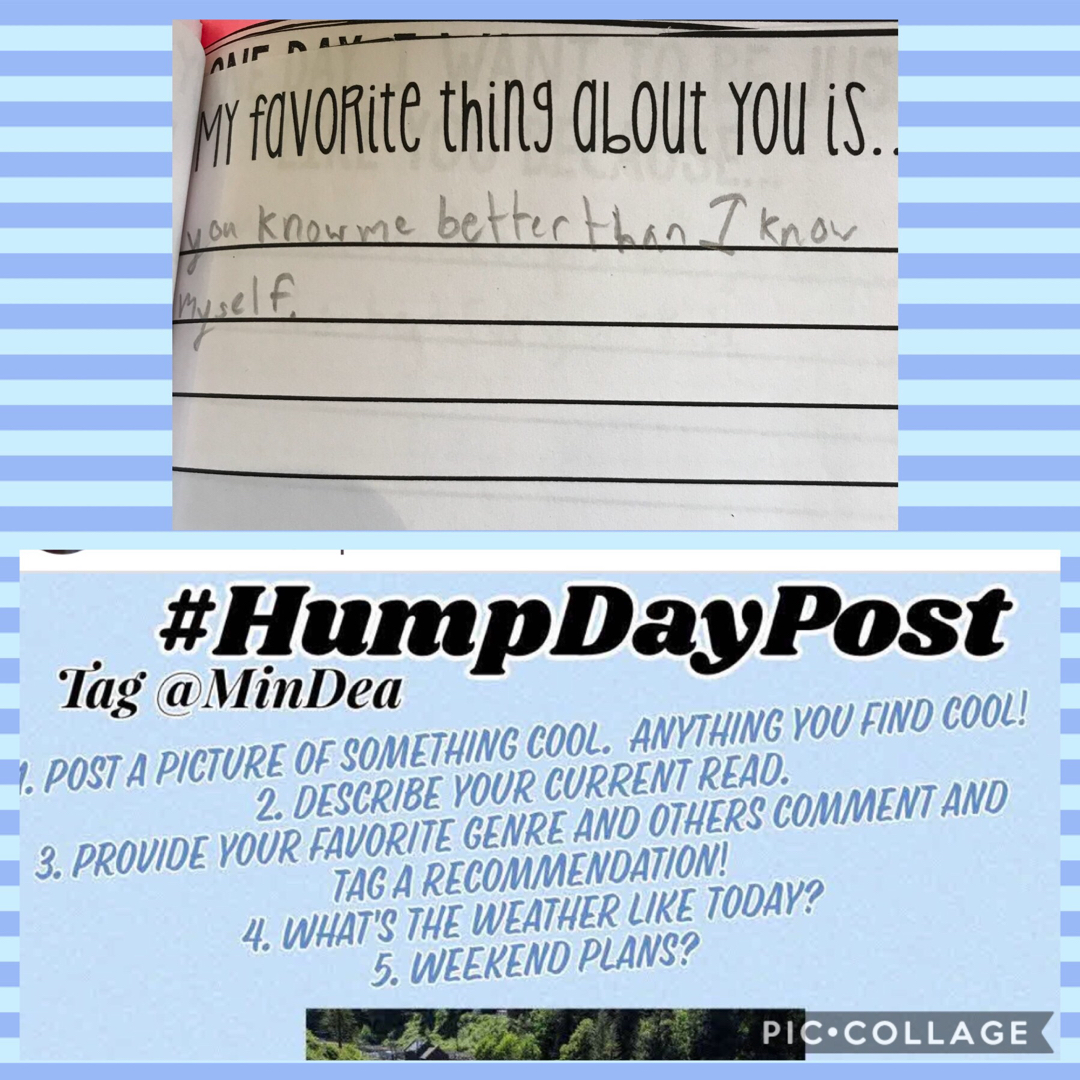 MY favoRite thing about YOU is..
you know me better than I know
myself.
#HumpDayPost
Tag @MinDea
1. POST A PICTURE OF SOMETHING COOL. ANYTHING YOU FIND COOL!
2. DESCRIBE YOUR CURRENT READ.
3. PROVIDE YOUR FAVORITE GENRE AND OTHERS COMMENT AND
TAG A RECOMMENDATION!
4. WHAT'S THE WEATHER LIKE TODAY?
5. WEEKEND PLANS?
PIC•COLLAGE